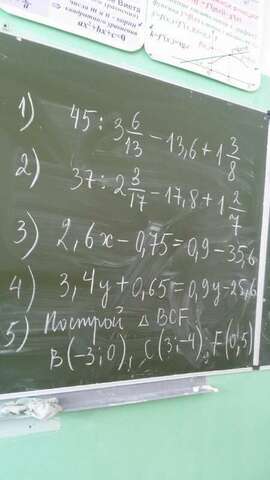 числа m и n - корни
ax²+bx+c=0
1) 45 : 3 6/13 - 13,6 + 1 3/8
2) 37 : 2 3/17 - 17,8 + 1 2/7
3) 2,6x - 0,75 = 0,9 - 35,6
4) 3,4y + 0,65 = 0,9y - 25,6
5) Построй △ BCF
B(-3;0), C(3;-4); F(0;5)